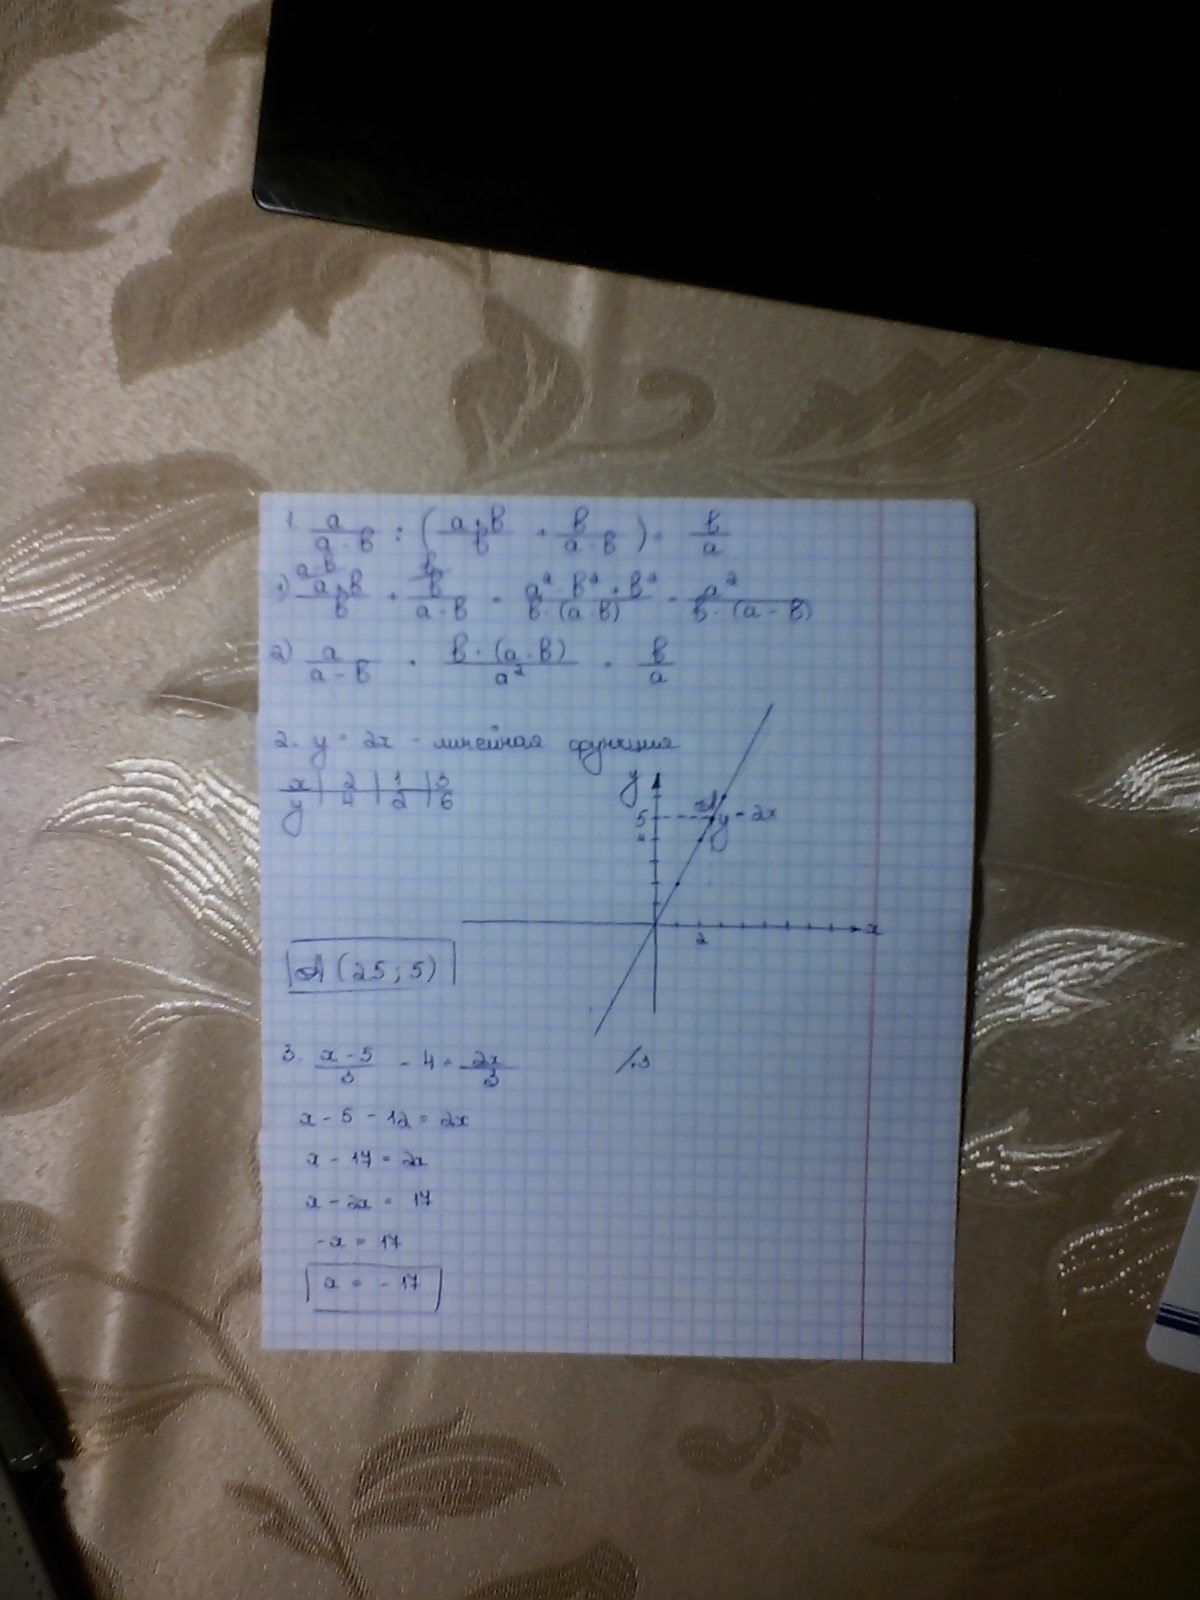 1. a/(a-b) : ((a+b)/b + b/(a-b)) = b/a
1) (a+b)/b + b/(a-b) = (a² - b² + b²)/(b·(a-b)) = a²/(b·(a-b))
2) a/(a-b) · b·(a-b)/a² = b/a
2. y = 2x - линейная функция
x | 2 | 1 | 3
y | 4 | 2 | 6
y
5
4
A
y = 2x
2
x
A (25; 5)
3. (x-5)/3 - 4 = 2x/3 /·3
x - 5 - 12 = 2x
x - 17 = 2x
x - 2x = 17
-x = 17
x = -17